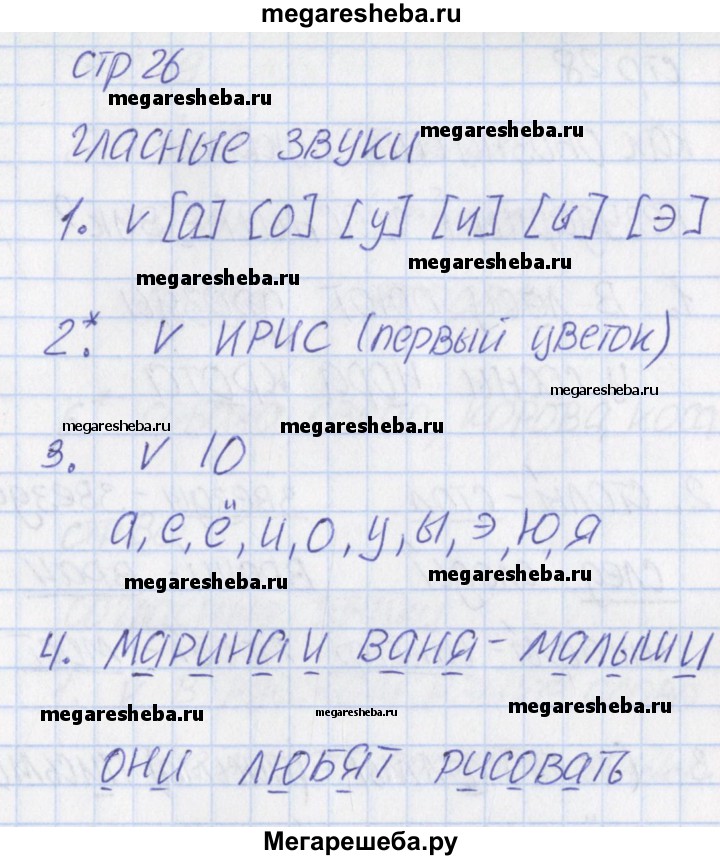 megaresheba.ru
стр 26
megaresheba.ru
гласные звуки megaresheba.ru
1. v [а] [о] [у] [и] [ы] [э]
megaresheba.ru megaresheba.ru
2.* v ИРИС (первый цветок)
megaresheba.ru
megaresheba.ru megaresheba.ru
3. v 10
а, е, ё, и, о, у, ы, э, ю, я
megaresheba.ru megaresheba.ru
4. Марина и Ваня - малыши
megaresheba.ru megaresheba.ru megaresheba.ru
они любят рисовать
Мегарешеба.ру